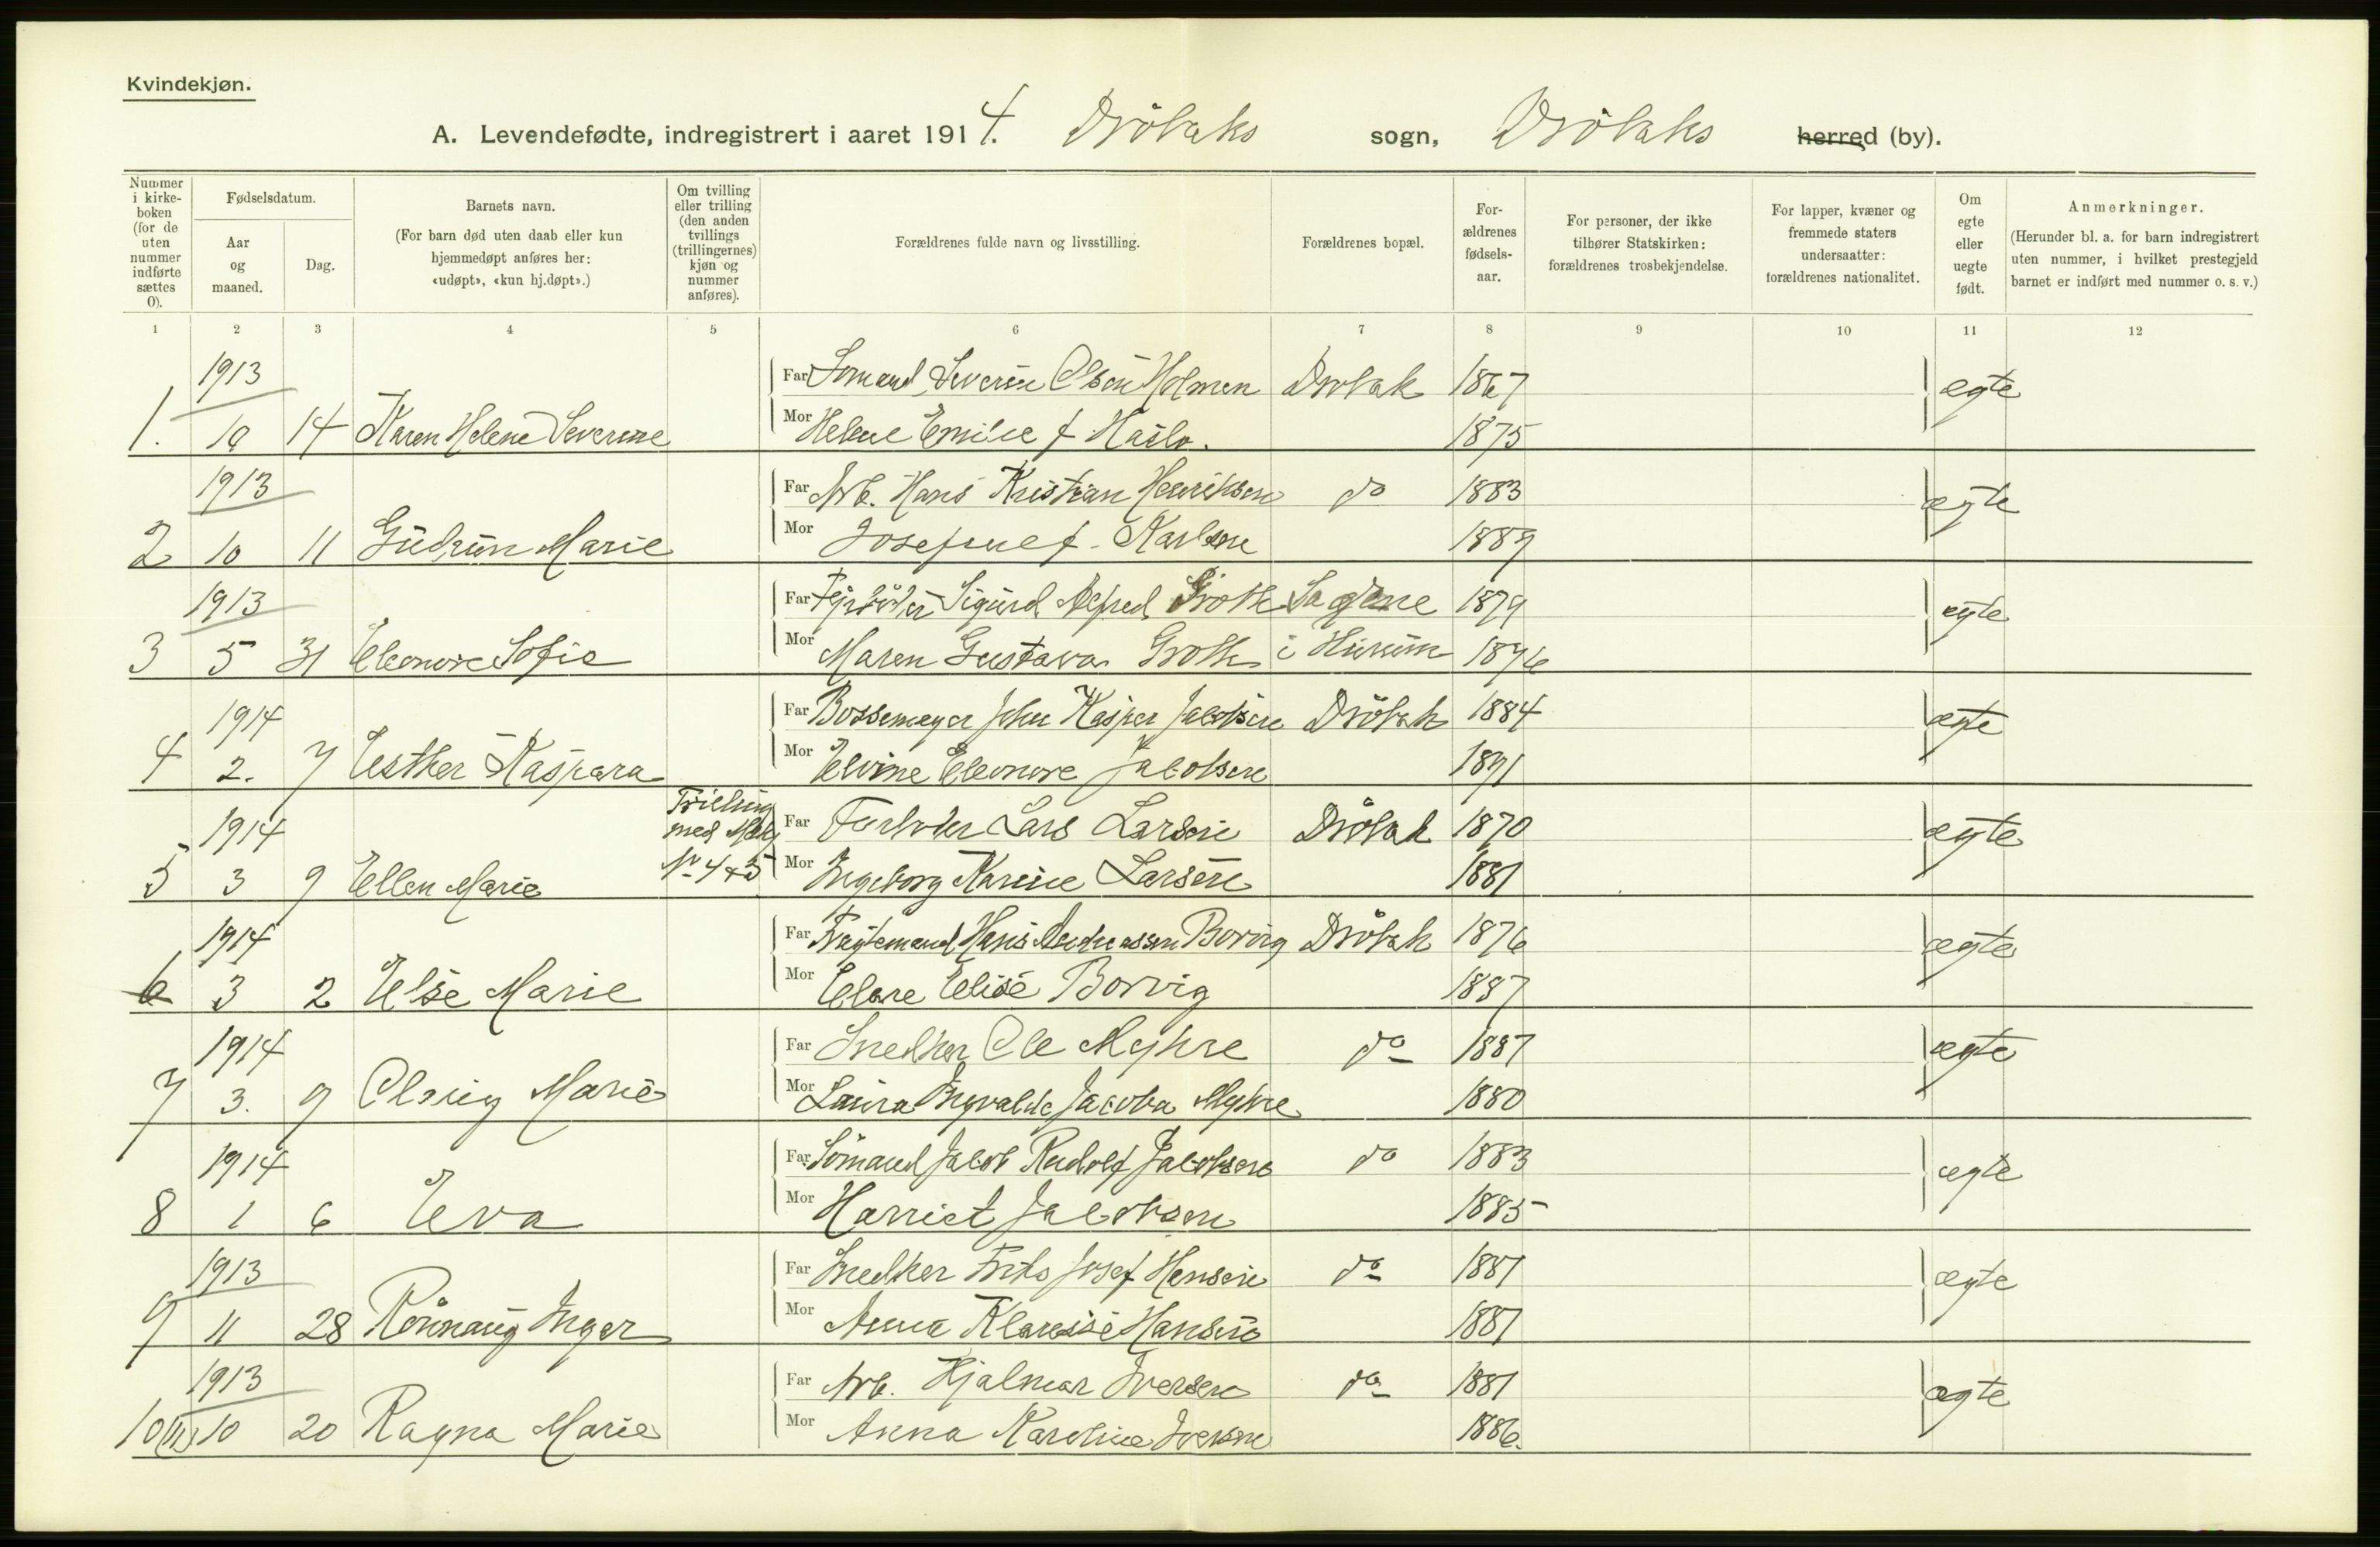 Kvindekjøn.
A. Levendefødte, indregistrert i aaret 1914. Drøbaks sogn, Drøbaks herred (by).
Nummer i kirke-boken (for de uten nummer indførte sættes 0).
Fødselsdatum.
Aar og maaned.
Dag.
Barnets navn.
(For barn død uten daab eller kun hjemmedøpt anføres her: «udøpt», «kun hj.døpt».)
Om tvilling eller trilling (den anden tvillings (trillingernes) kjøn og nummer anføres).
Forældrenes fulde navn og livsstilling.
Forældrenes bopæl.
For-ældrenes fødsels-aar.
For personer, der ikke tilhører Statskirken: forældrenes trosbekjendelse.
For lapper, kvæner og fremmede staters undersaatter: forældrenes nationalitet.
Om egte eller uegte født.
Anmerkninger.
(Herunder bl. a. for barn indregistrert uten nummer, i hvilket prestegjeld barnet er indført med nummer o. s. v.)
1 2 3 4 5 6 7 8 9 10 11 12
1913 Far Sømand Severin Olsen Holmen Drøbak 1867 ægte
1. 10 14 Karen Helene Severine Mor Helene Emilie f Haslo. 1875
1913 Far Arb. Hans Kristian Henriksen do 1883 ægte
2 10 11 Gudrun Marie Mor Josefine f. Karlsen 1889
1913 Far Sigurd Alfred Groth Sagene 1879 egte
3 5 31 Eleonore Sofie Mor Maren Gustava Groth i Hurum 1876
1914 Far Bossemager John Kasper Jacobsen Drøbak 1884 ægte
4 2. 7 Esther Kaspara Mor Elvine Eleonore Jacobsen 1891
1914 Trilling med Far Lars Larsen Drøbak 1870 ægte
5 3 9 Ellen Marie No 4 & 5 Mor Ingeborg Karine Larsen 1881
1914 Far Fragtemand Hans Andreassen Borvig Drøbak 1876 ægte
6 3 2 Else Marie Mor Elise Borvig 1887
1914 Far Snedker Ole Myhre do 1887 ægte
7 3. 9 Olaug Marie Mor Laura Ingvalda Jacoba Myhre 1880
1914 Far Sømand Jacob Rudolf Jacobsen do 1883 ægte
8 1 6 Eva Mor Harriet Jacobsen 1885
1913 Far Snedker Frits Josef Hansen do 1881 ægte
9 11 28 Rønnaug Inger Mor Anna Klarisse Hansen 1881
1913 Far Arb. Hjalmar Iversen do 1881 ægte
10(11) 10 20 Ragna Marie Mor Anna Karoline Iversen 1886.